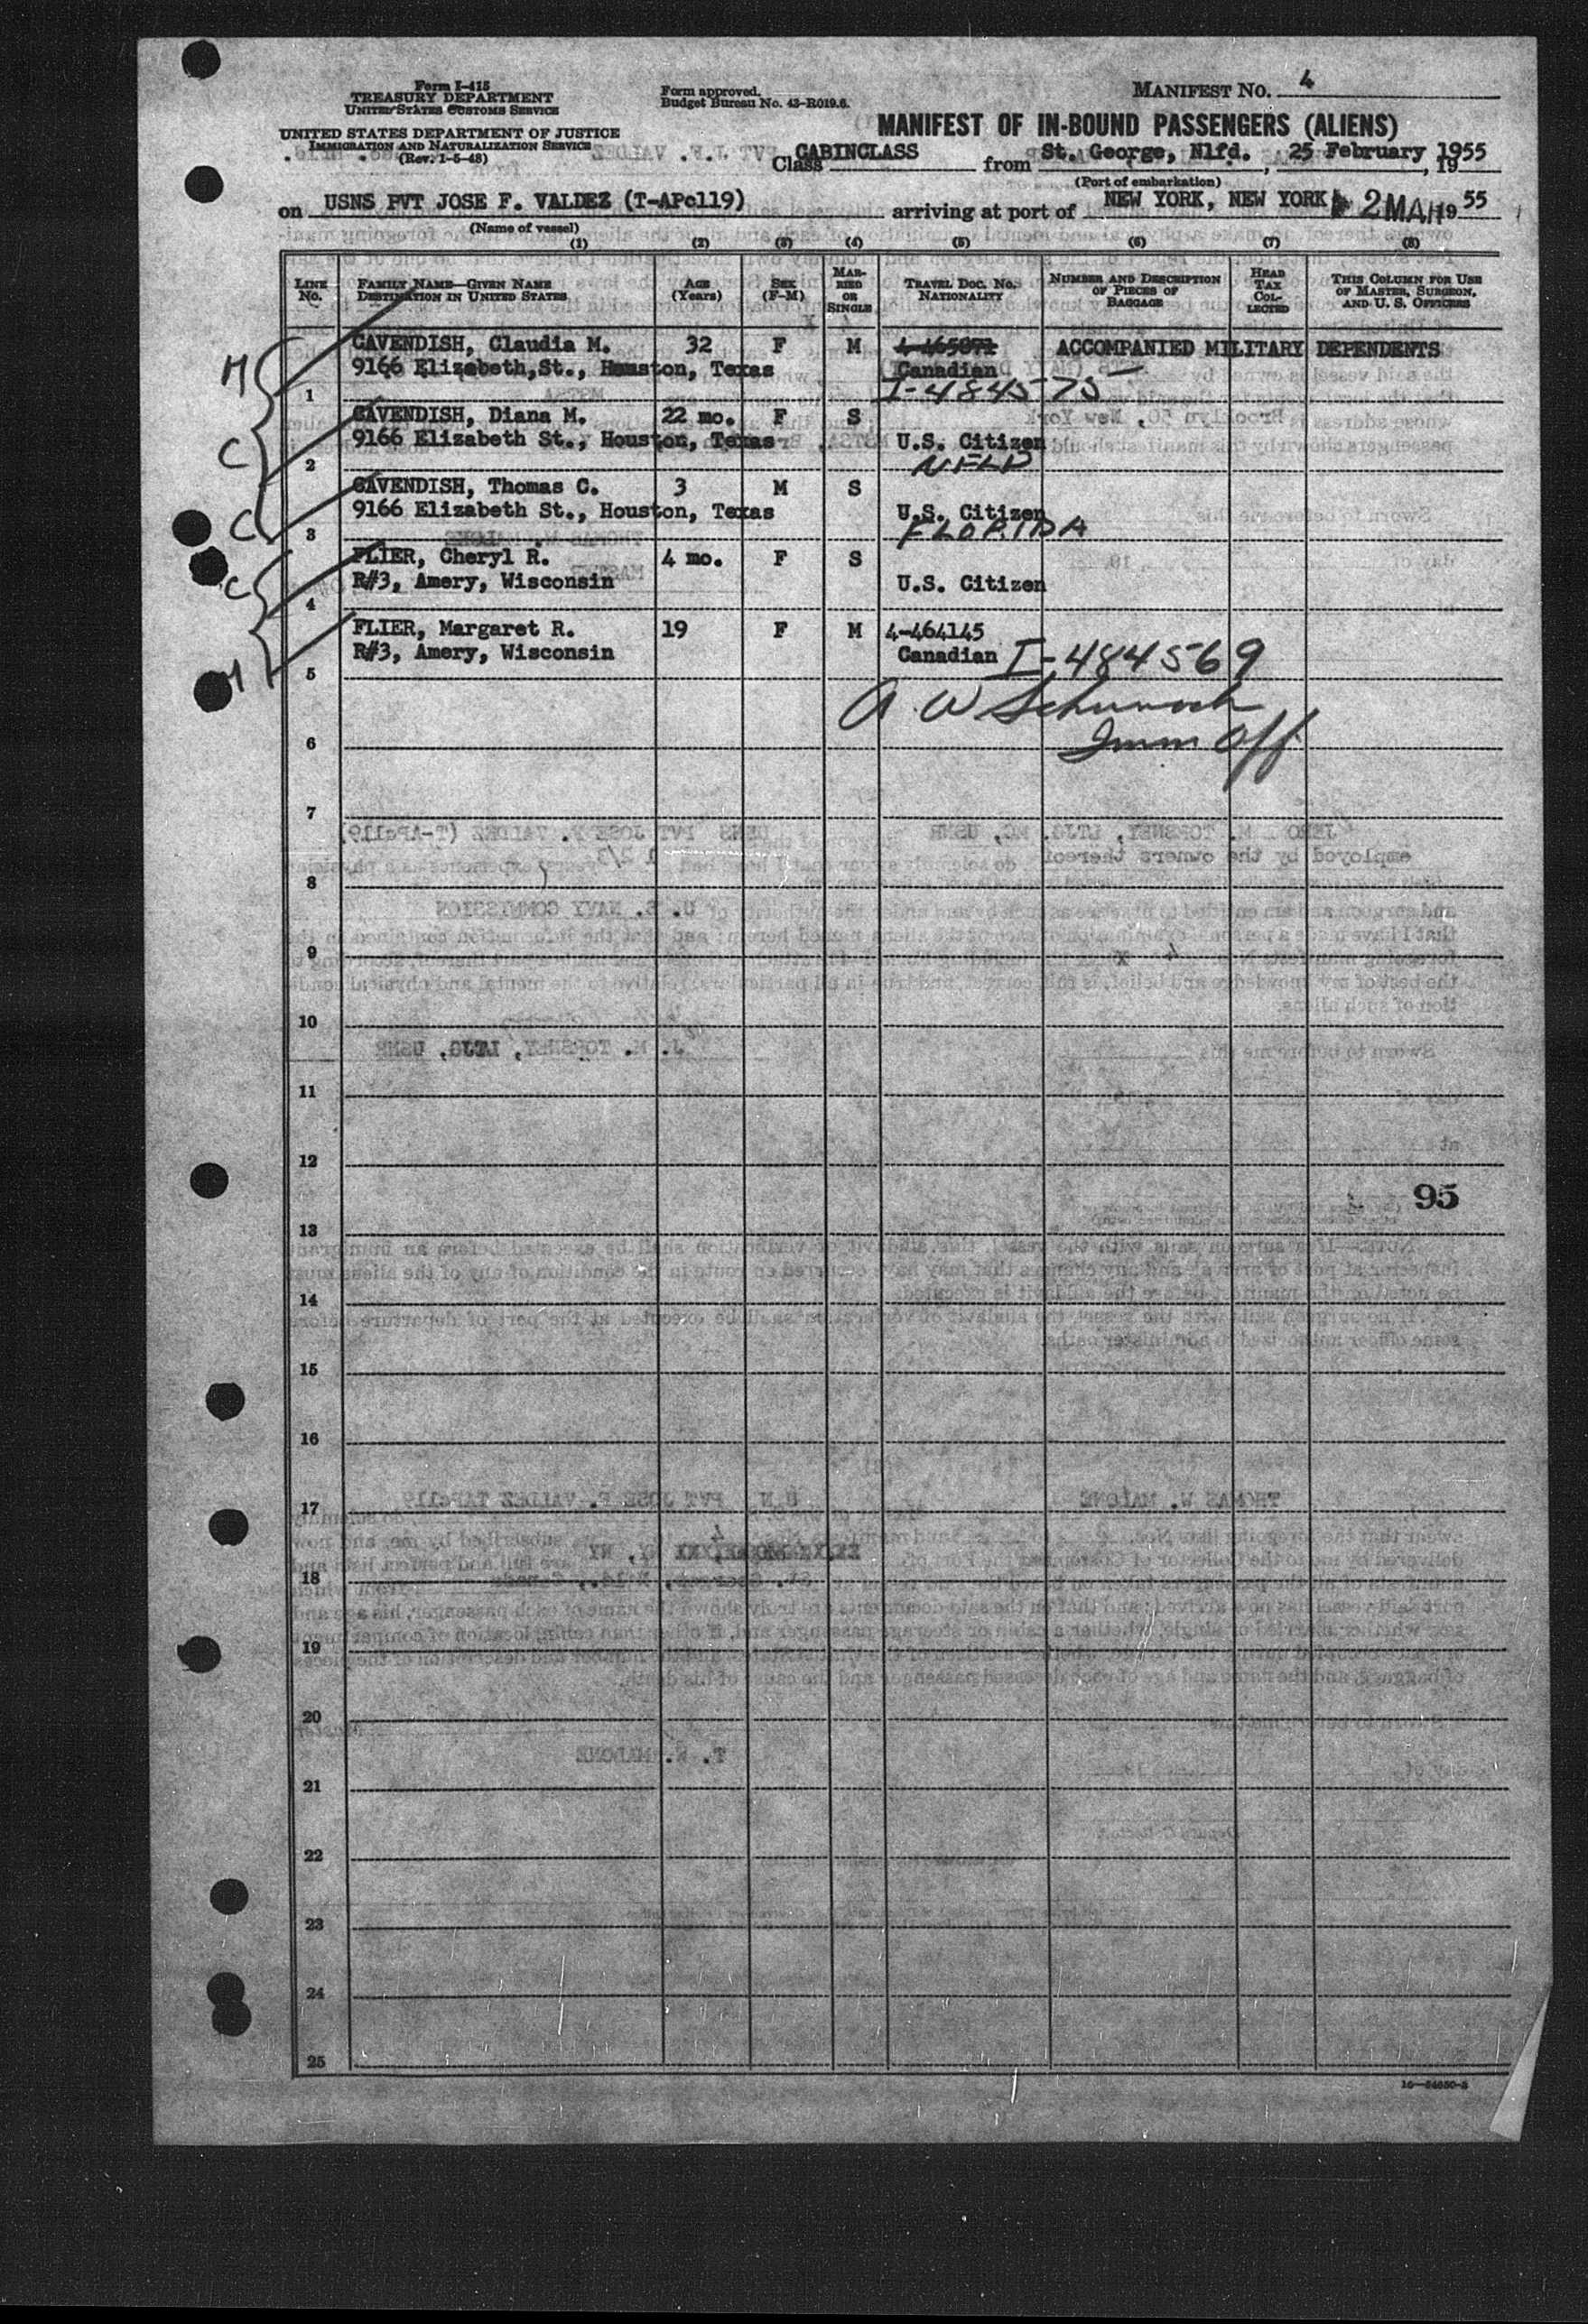 Form I-415
TREASURY DEPARTMENT
UNITED STATES CUSTOMS SERVICE
UNITED STATES DEPARTMENT OF JUSTICE
IMMIGRATION AND NATURALIZATION SERVICE
(Rev. 1-5-48)
Form approved.
Budget Bureau No. 43-R019.6.
MANIFEST NO. 4
MANIFEST OF IN-BOUND PASSENGERS (ALIENS)
Class CABINCLASS from St. George, Nlfd., 25 February, 1955
(Port of embarkation)
on USNS PVT JOSE F. VALDEZ (T-APc119) arriving at port of NEW YORK, NEW YORK 2 MAR 1955
(Name of vessel)
(1) (2) (3) (4) (5) (6) (7) (8)
LINE No. FAMILY NAME—GIVEN NAME DESTINATION IN UNITED STATES AGE (Years) SEX (F-M) MARRIED OR SINGLE TRAVEL DOC. NO. NATIONALITY NUMBER AND DESCRIPTION OF PIECES OF BAGGAGE HEAD TAX COLLECTED THIS COLUMN FOR USE OF MASTER, SURGEON, AND U. S. OFFICERS
CAVENDISH, Claudia M. 32 F M 4-465871 ACCOMPANIED MILITARY DEPENDENTS
M 9166 Elizabeth St., Houston, Texas Canadian
1 I-484575
CAVENDISH, Diana M. 22 mo. F S
C 9166 Elizabeth St., Houston, Texas U.S. Citizen
2 NFLD
CAVENDISH, Thomas C. 3 M S
C 9166 Elizabeth St., Houston, Texas U.S. Citizen
3 FLORIDA
FLIER, Cheryl R. 4 mo. F S
C R#3, Amery, Wisconsin U.S. Citizen
4
FLIER, Margaret R. 19 F M 4-464145
M R#3, Amery, Wisconsin Canadian I-484569
5
A W
Imm Off
6
7
8
9
10
11
12
95
13
14
15
16
17
18
19
20
21
22
23
24
25